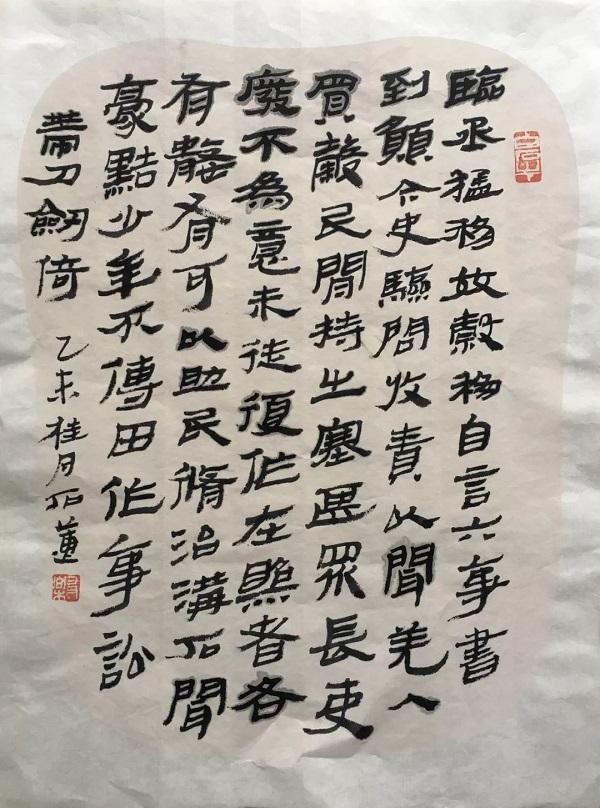 臨丞猛移故穀移自言六事書
到願令史驗問收責以聞羌人
買穀民間持出塞甚眾長吏
廢不為意未徒復作在縣者各
有數有可以助民脩治溝石聞
豪黠少年不傳田作事訟
帶刀劍倚
乙未桂月石蓮